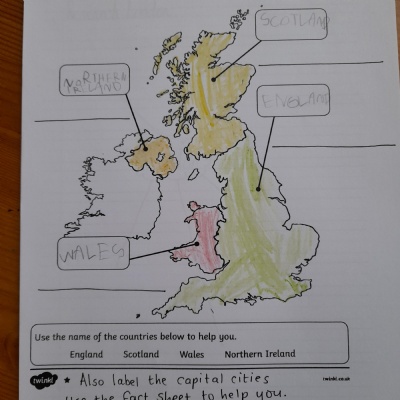 SCOTLAND
NORTHERN
IRELAND
ENGLAND
WALES
Use the name of the countries below to help you.
England Scotland Wales Northern Ireland
twinkl
twinkl.co.uk
★ Also label the capital cities
Use the fact sheet to help you.